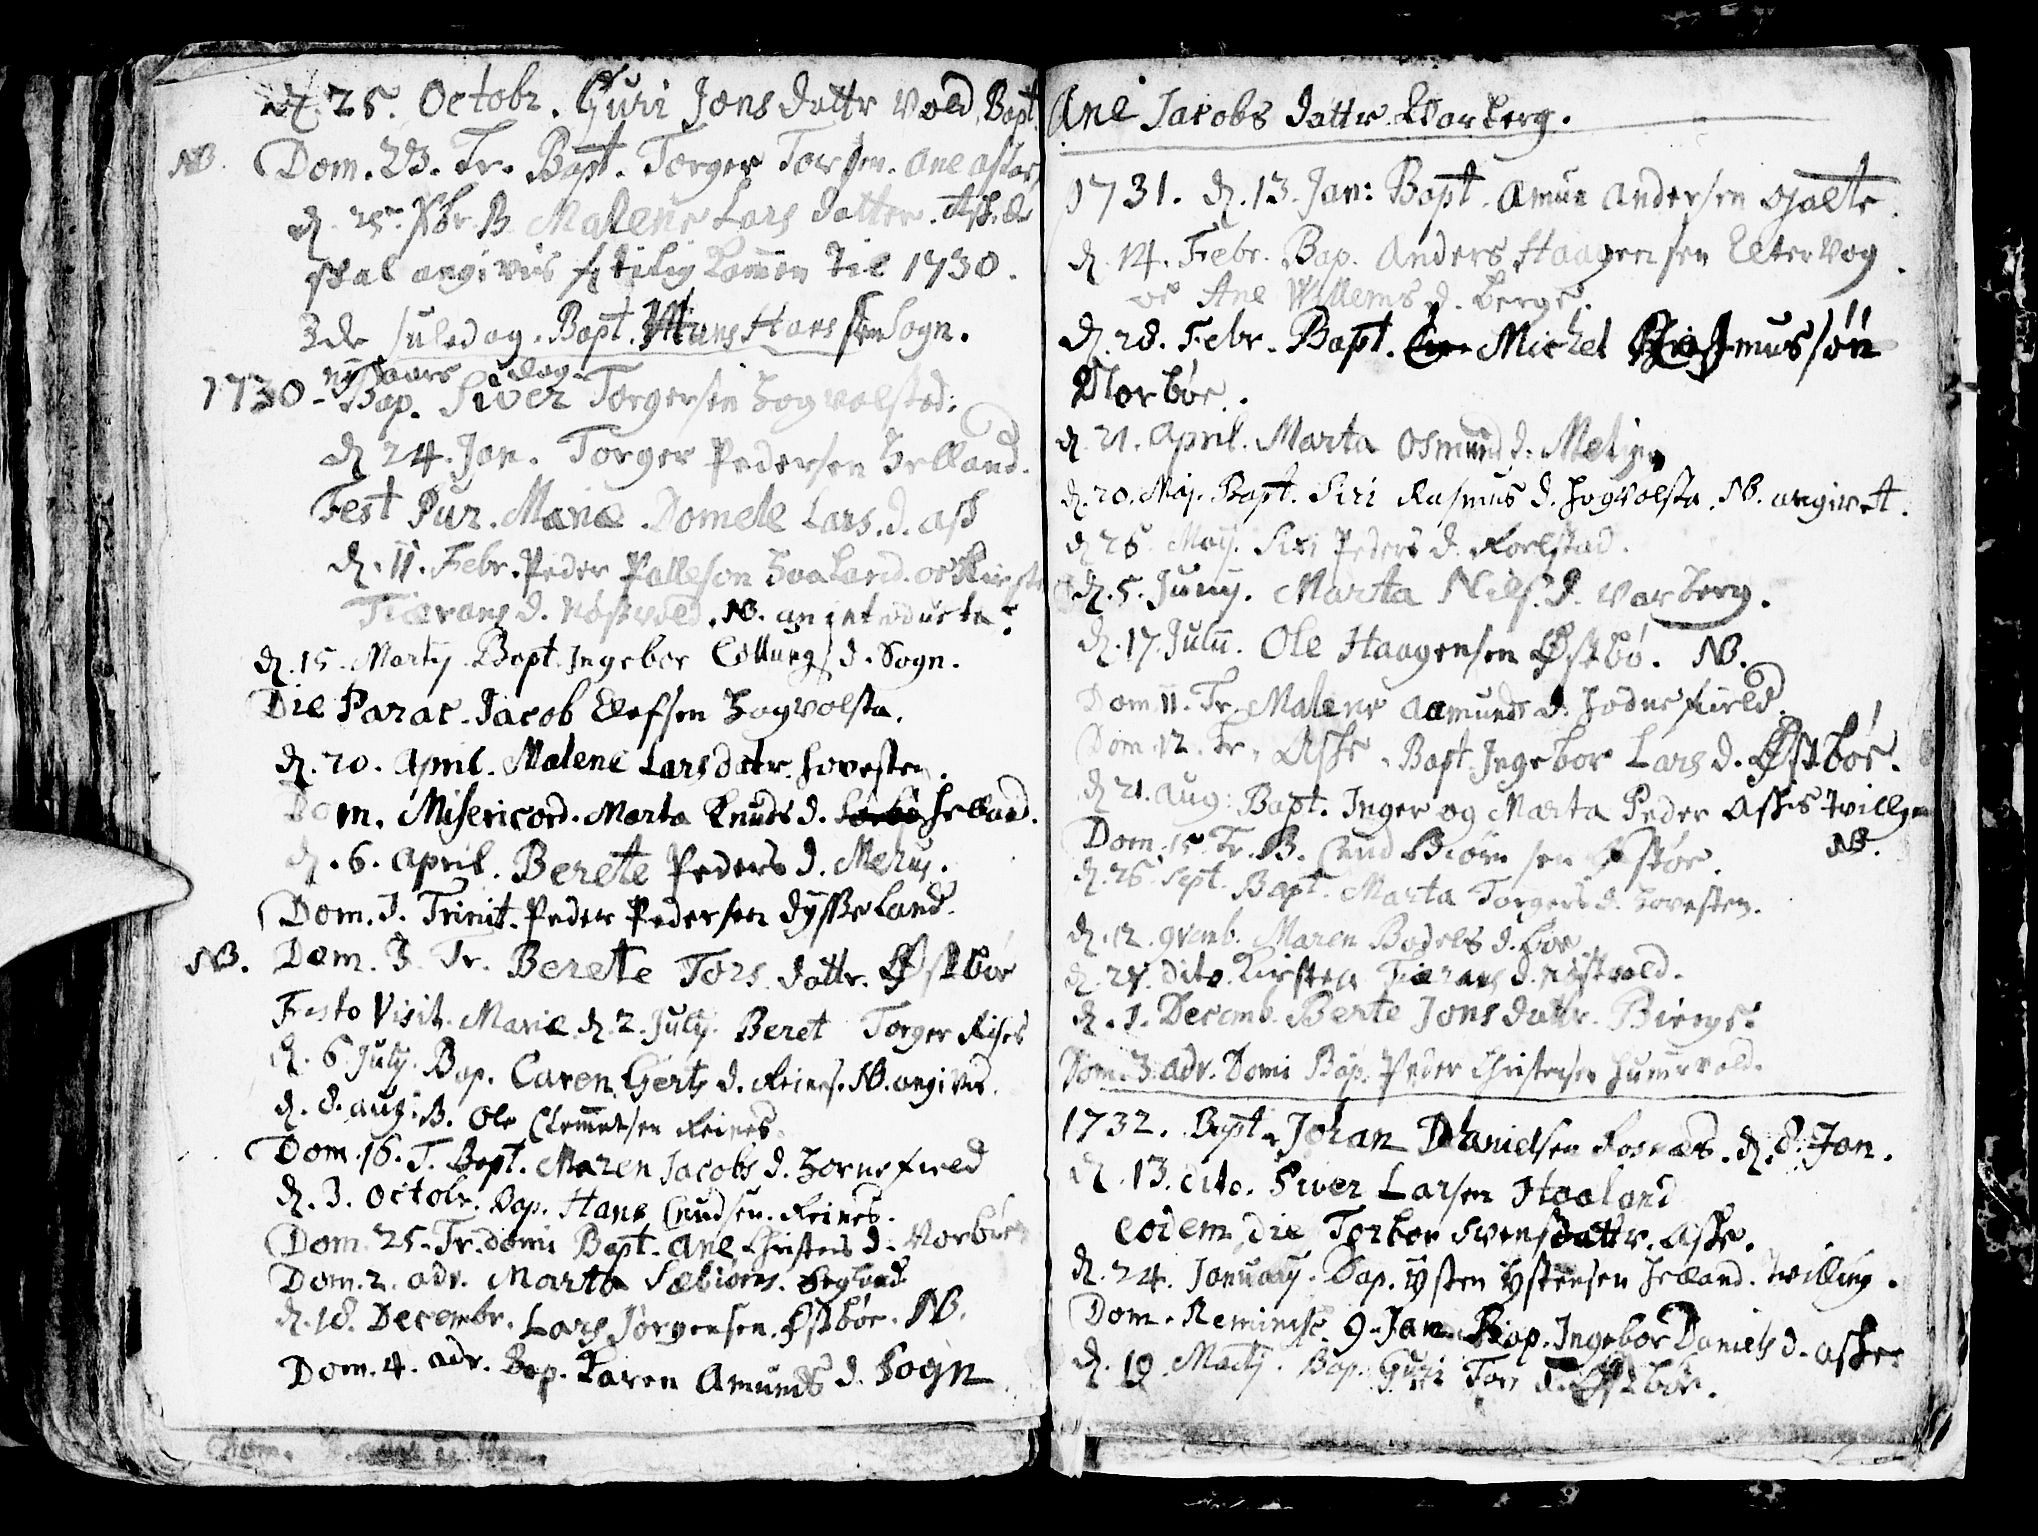 d. 25. Octobr. Guri Jons dattr Vold, Bapt
NB. Dom. 23. Tr. Bapt. Torger Torsen. Ane Askas
d. 25 Xbr. B. Malene Lars datter. Ask. de
skal angivis til 1730.
3de juledag. Bapt. Hans Hansen Sogn.
nÿ aars dag.
1730 - Bap. Siver Torgersen Hogvolstad.
d. 24. Jan. Torger Pedersen Helland.
Fest Pur. Mariæ. Domele Lars. d. Ask
d. 11. Febr. Peder Palleson Haaland. oc Kirst
Tiærans d. Nøstvold. NB. an introducta?
d. 15. Martÿ. Bapt. Ingebor d. Sogn.
Die Parac. Jacob Elefsen Hogvolsta.
d. 20. April. Malene Lars datr. Hovesten.
Dom. Misericord. Marta Knuds d. Helland.
d. 6. April. Berete Peders d. Meling.
Dom. 1. Trinit. Peder Pedersen Dÿsseland.
NB. Dom. 3. Tr. Berete Tors dattr. Østbøe
Festo Visit. Mariæ d. 2. Julÿ. Beret Torger Rises
d. 6 Julÿ. Bap. Caren Gerts d. Reines. NB. angivet.
d. 8. aug: B. Ole Clemetsen Reines.
Dom. 16. T. Bapt. Maren Jacobs d. Hornefield
d. 3. Octobr. Bap. Hans Cnudsen. Reines.
Dom. 25. Tr. domi Bapt. Ane Christens d. Norbøe
Dom. 2. adv. Marta Sæbiörns.
d. 18. Decembr. Lars Jørgensen. Østbøe. NB.
Dom. 4. adv. Bap. Karen Amunds d. Sogn
Ane Jacobs dattr Warberg.
1731. d. 13. Jan: Bapt. Amun Andersen Gjælte.
d. 14. Febr. Bap. Anders Haagensen Eltervog
oc Ane Willems d. Berge.
d. 28. Febr. Bapt. Michel Rasmussøn
Norbøe.
d. 21. April. Marta Osmund d. Meling
d. 20. Maj. Bapt. Siri Rasmus d. Hogvolsta. NB. angivet.
d. 25. Maÿ. Siri Peders d. Rorlstad.
d. 5. Junÿ. Marta Niels. d. Varberg.
d. 17. Julii. Ole Haagensen Østbø. NB.
Dom. 11. Tr. Malene Aamunds d. Hodnefield.
Dom. 12. Tr. Aske. Bapt. Ingebor Lars d. Østbøe.
d. 21. Aug: Bapt. Inger og Marta Peder Askes twilling
Dom. 15 Tr. B. Cnud Biörnsen Østbøe. NB.
d. 26. Sept. Bapt. Marta Torgers d. Hovesten.
d. 12. 9vemb. Maren Bodels d. Boe
d. 27. dito. Kirsten Tiærans d. Nøstvold.
d. 1. Decemb. Berte Jons dattr. Bierge.
Dom. 3. adv. Domi Bap. Peder Christensen Hummervold.
1732. Bapt. Johan Danielsen Rosnæs. d. 8. Jan.
d. 13. dito. Siver Larsen Haaland
eodem die Torbor Svensdattr. Aske.
d. 24. Januarÿ. Bap. Ÿsten Ÿstensen Helland. twilling.
Dom. Reminisc. 9. Jan. Bap. Ingebor Daniels d. Aske
d. 19. Martÿ. Bap. Guri Tors d. Østbøe.